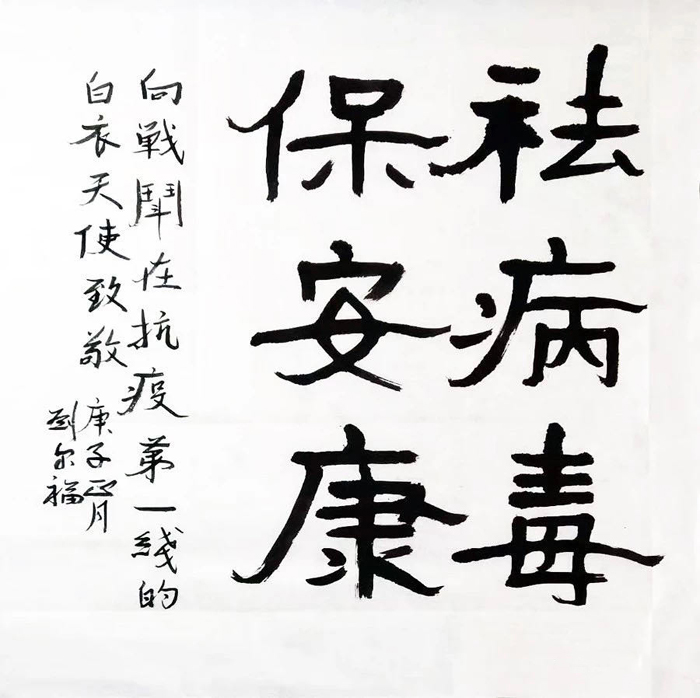 祛病毒
保安康
向戰鬪在抗疫第一綫的
白衣天使致敬
庚子正月
劉尔福